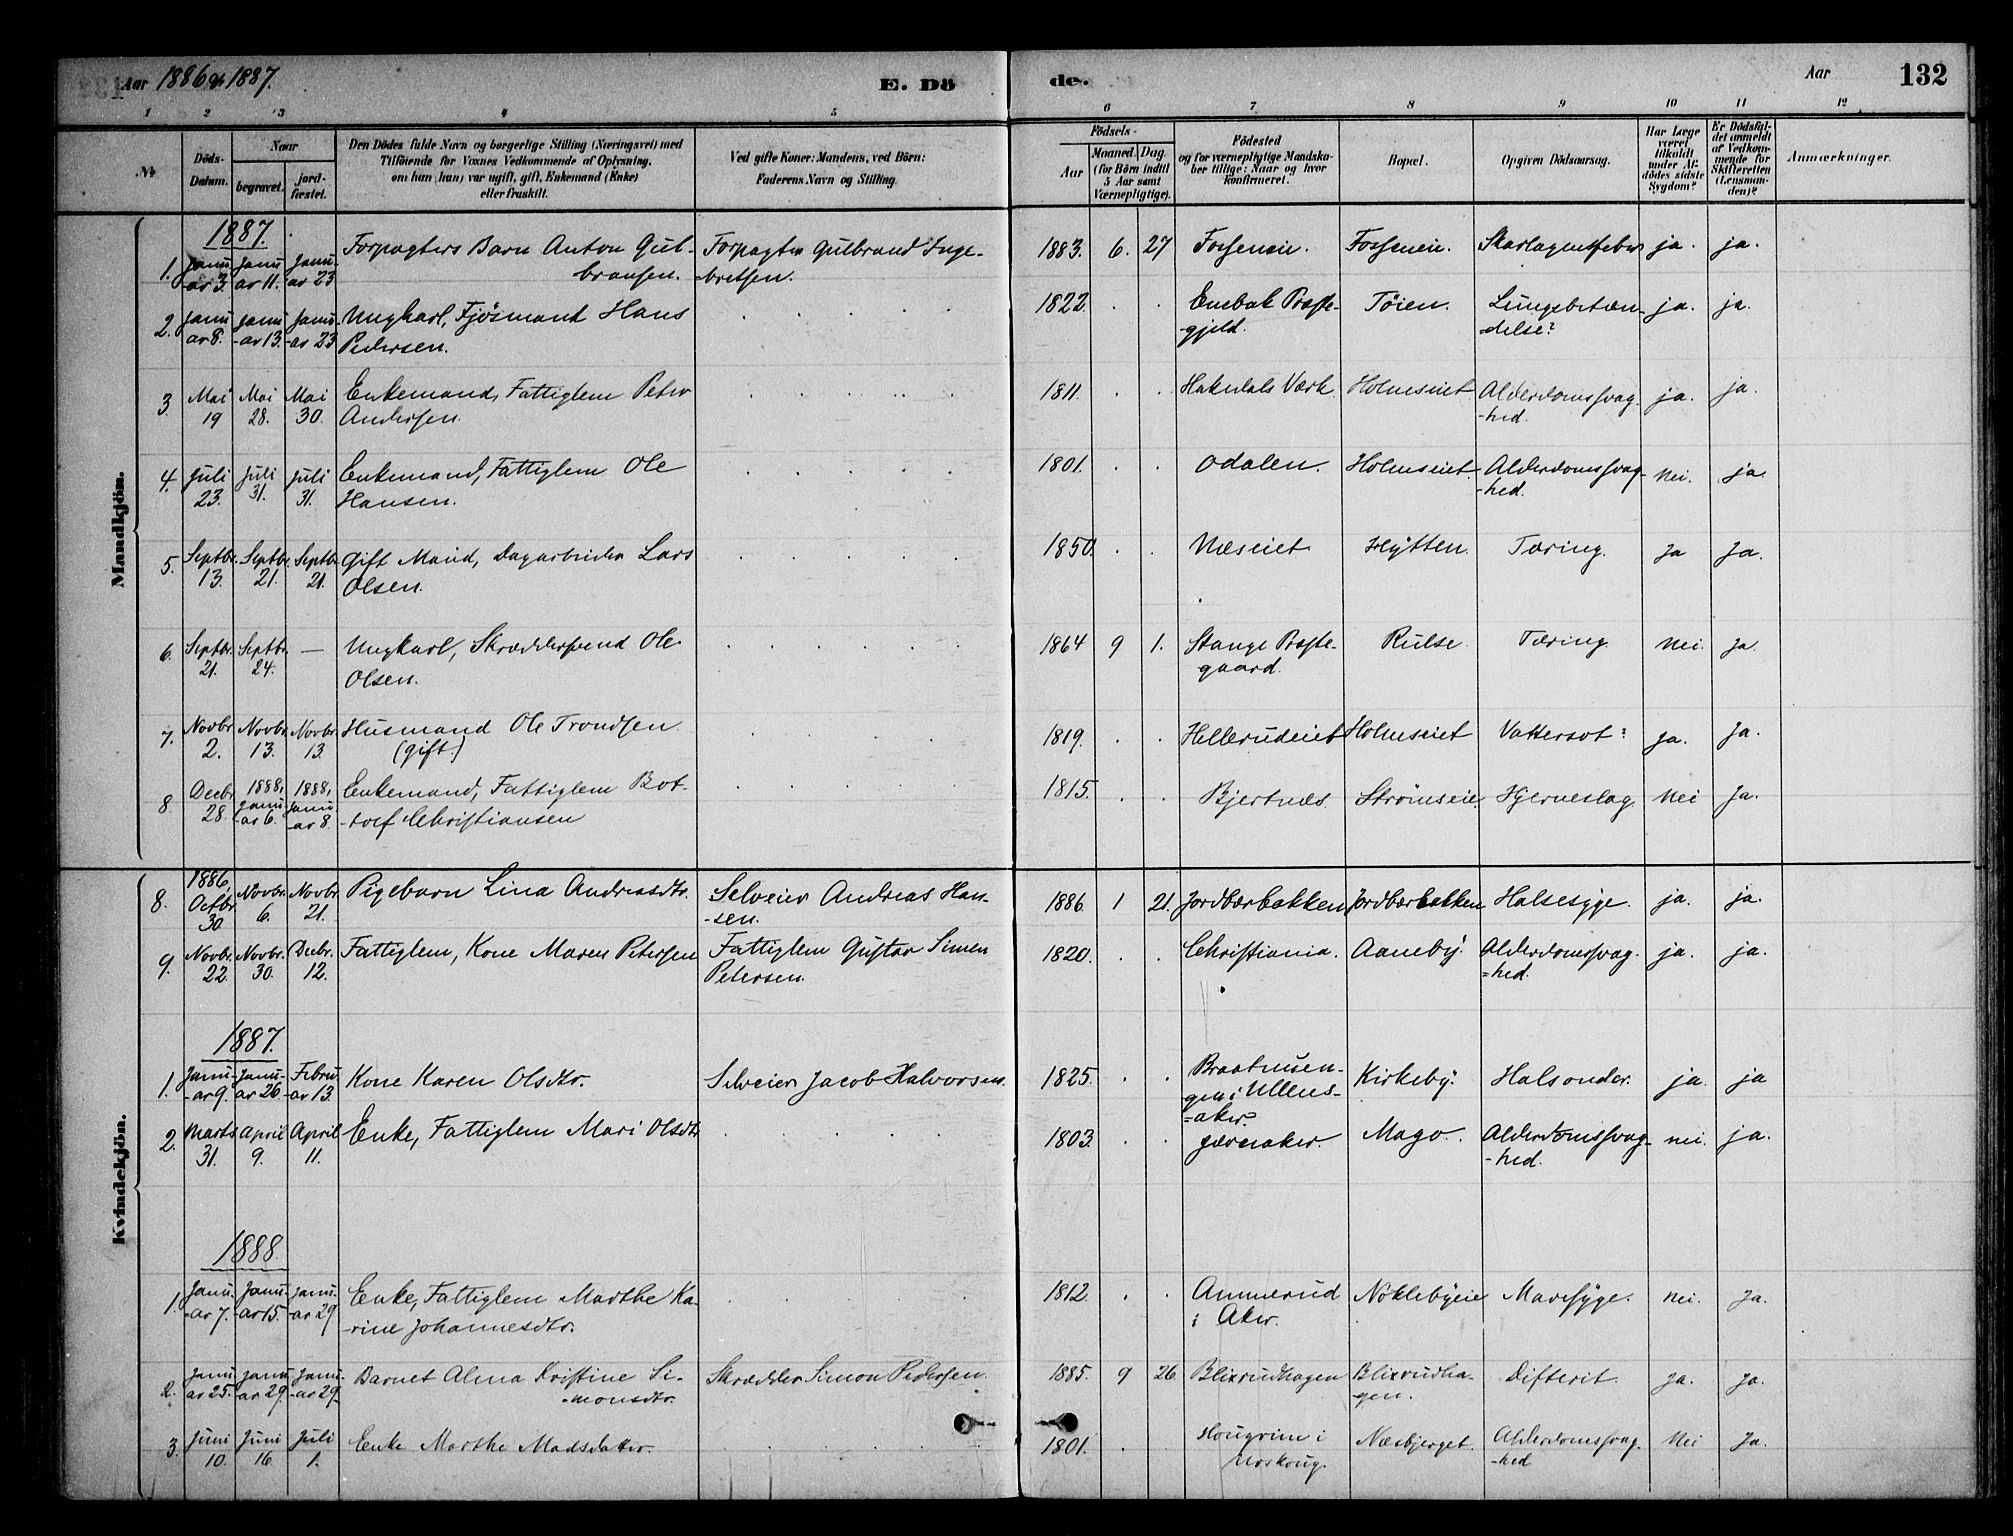 Aar 1886 og 1887.
E. Dö
de.
Aar
132
1 2 3 4 5 6 7 8 9 10 11 12
No
Döds-
Datum.
Naar
begravet.
jord-
fæstet.
Den Dödes fulde Navn og borgerlige Stilling (Næringsvei) med
Tilföiende for Voxnes Vedkommende af Oplysning,
om han (hun) var ugift, gift, Enkemand (Enke)
eller fraskilt.
Ved gifte Koner: Mandens, ved Börn:
Faderens Navn og Stilling.
Födsels-
Aar
Maaned.
Dag
(for Börn indtil
5 Aar samt
Værnepligtige).
Födested
og for værnepligtige Mandska-
ber tillige: Naar og hvor
konfirmeret.
Bopæl.
Opgiven Dödsaarsag.
Har Læge
været
tilkaldt
under Af-
dödes sidste
Sygdom?
Er Dödsfal-
det anmeldt
af Vedkom-
mende for
Skifteretten
(Lensman-
den)?
Anmærkninger.
Mandkjön.
1887.
1. Janu-ar 3. Janu-ar 11. Janu-ar 23 Forpagters Barn Anton Gul-
bransen. Forpagter Gulbrand Inge-
-bretsen. 1883. 6. 27 Fosseneie. Fosseneie. Skarlagensfeber ja. ja.
2. Janu-ar 8. Janu-ar 13. Janu-ar 23 Ungkarl, Fjösmand Hans
Pedersen. 1822. Enebak Præste-
-gjeld. Töien. Lungebetæn-
-delse? ja. ja.
3. Mai 19 Mai 28. Mai 30. Enkemand, Fattiglem Peter
Andersen. 1811. Hakedals Værk Holmseiet Alderdomssvag-
-hed. ja. ja.
4. Juli 23. Juli 31. Juli 31. Enkemand, Fattiglem Ole
Hansen. 1801. Odalen. Holmseiet Alderdomssvag-
-hed. nei. ja.
5. Septbr. 13. Septbr. 21. Septbr. 21. Gift Mand, Dagarbeider Lars
Olsen. 1850. Næseiet Hytten. Tæring. ja ja.
6. Septbr. 21. Septbr. 24. — Ungkarl, Skræddersvend Ole
Olsen. 1864 9 1. Stange Præste-
gaard. Rulse Tæring. nei. ja.
7. Novbr. 2. Novbr. 13. Novbr. 13 Husmand Ole Trondsen
(gift.) 1819. Hellerudeiet Holmseiet Vattersot? ja. ja.
8. Decbr. 28. 1888, Janu-ar 6. 1888, Janu-ar 8. Enkemand, Fattiglem Bot-
-tolf Christiansen 1815. Bjertnæs. Strömseie. Hjerneslag. nei ja.
Kvindekjön.
8. 1886, Octbr. 30. Novbr. 6. Novbr. 21. Pigebarn Lina Andreasdtr. Selveier Andreas Han-
-sen. 1886. 1 21. Jordbærbakken Jordbærbakken Halsesyge. ja. ja.
9. Novbr. 22. Novbr. 30. Decbr. 12. Fattiglem, Kone Maren Petersen Fattiglem Gustav Simen
Petersen. 1820. Christiania. Aaneby. Alderdomssvag-
=hed. ja. ja.
1887.
1. Janu-ar 9. Janu-ar 26. Febru-ar 13. Kone Karen Olsdtr. Selveier Jacob Halvorsen. 1825. Braatensen-
gen i Ullens-
=aker. Kirkeby. Halsonder. ja. ja
2. Marts 31. April 9. April 11. Enke, Fattiglem Mari Olsdtr 1803. Jævnaker. Mago. Alderdomssvag-
-hed. nei. ja.
1888.
1. Janu-ar 7. Janu-ar 15. Janu-ar 29 Enke, Fattiglem Marthe Ka-
-rine Johannesdtr. 1812. Ammerud
i Aker. Nöklebyeie Mavesyge. nei. ja.
2. Janu-ar 25. Janu-ar 29. Janu-ar 29. Barnet Alma Kristine Si-
-monsdtr. Skrædder Simon Pedersen. 1885. 9 26. Blixrudhagen Blixrudha-
gen. Difterit. ja. ja.
3. Juni 10. Juni 16 Juli 1. Enke Marthe Madsdatter. 1801. i
Næsbjerget. Alderdomssvag-
-hed nei ja.